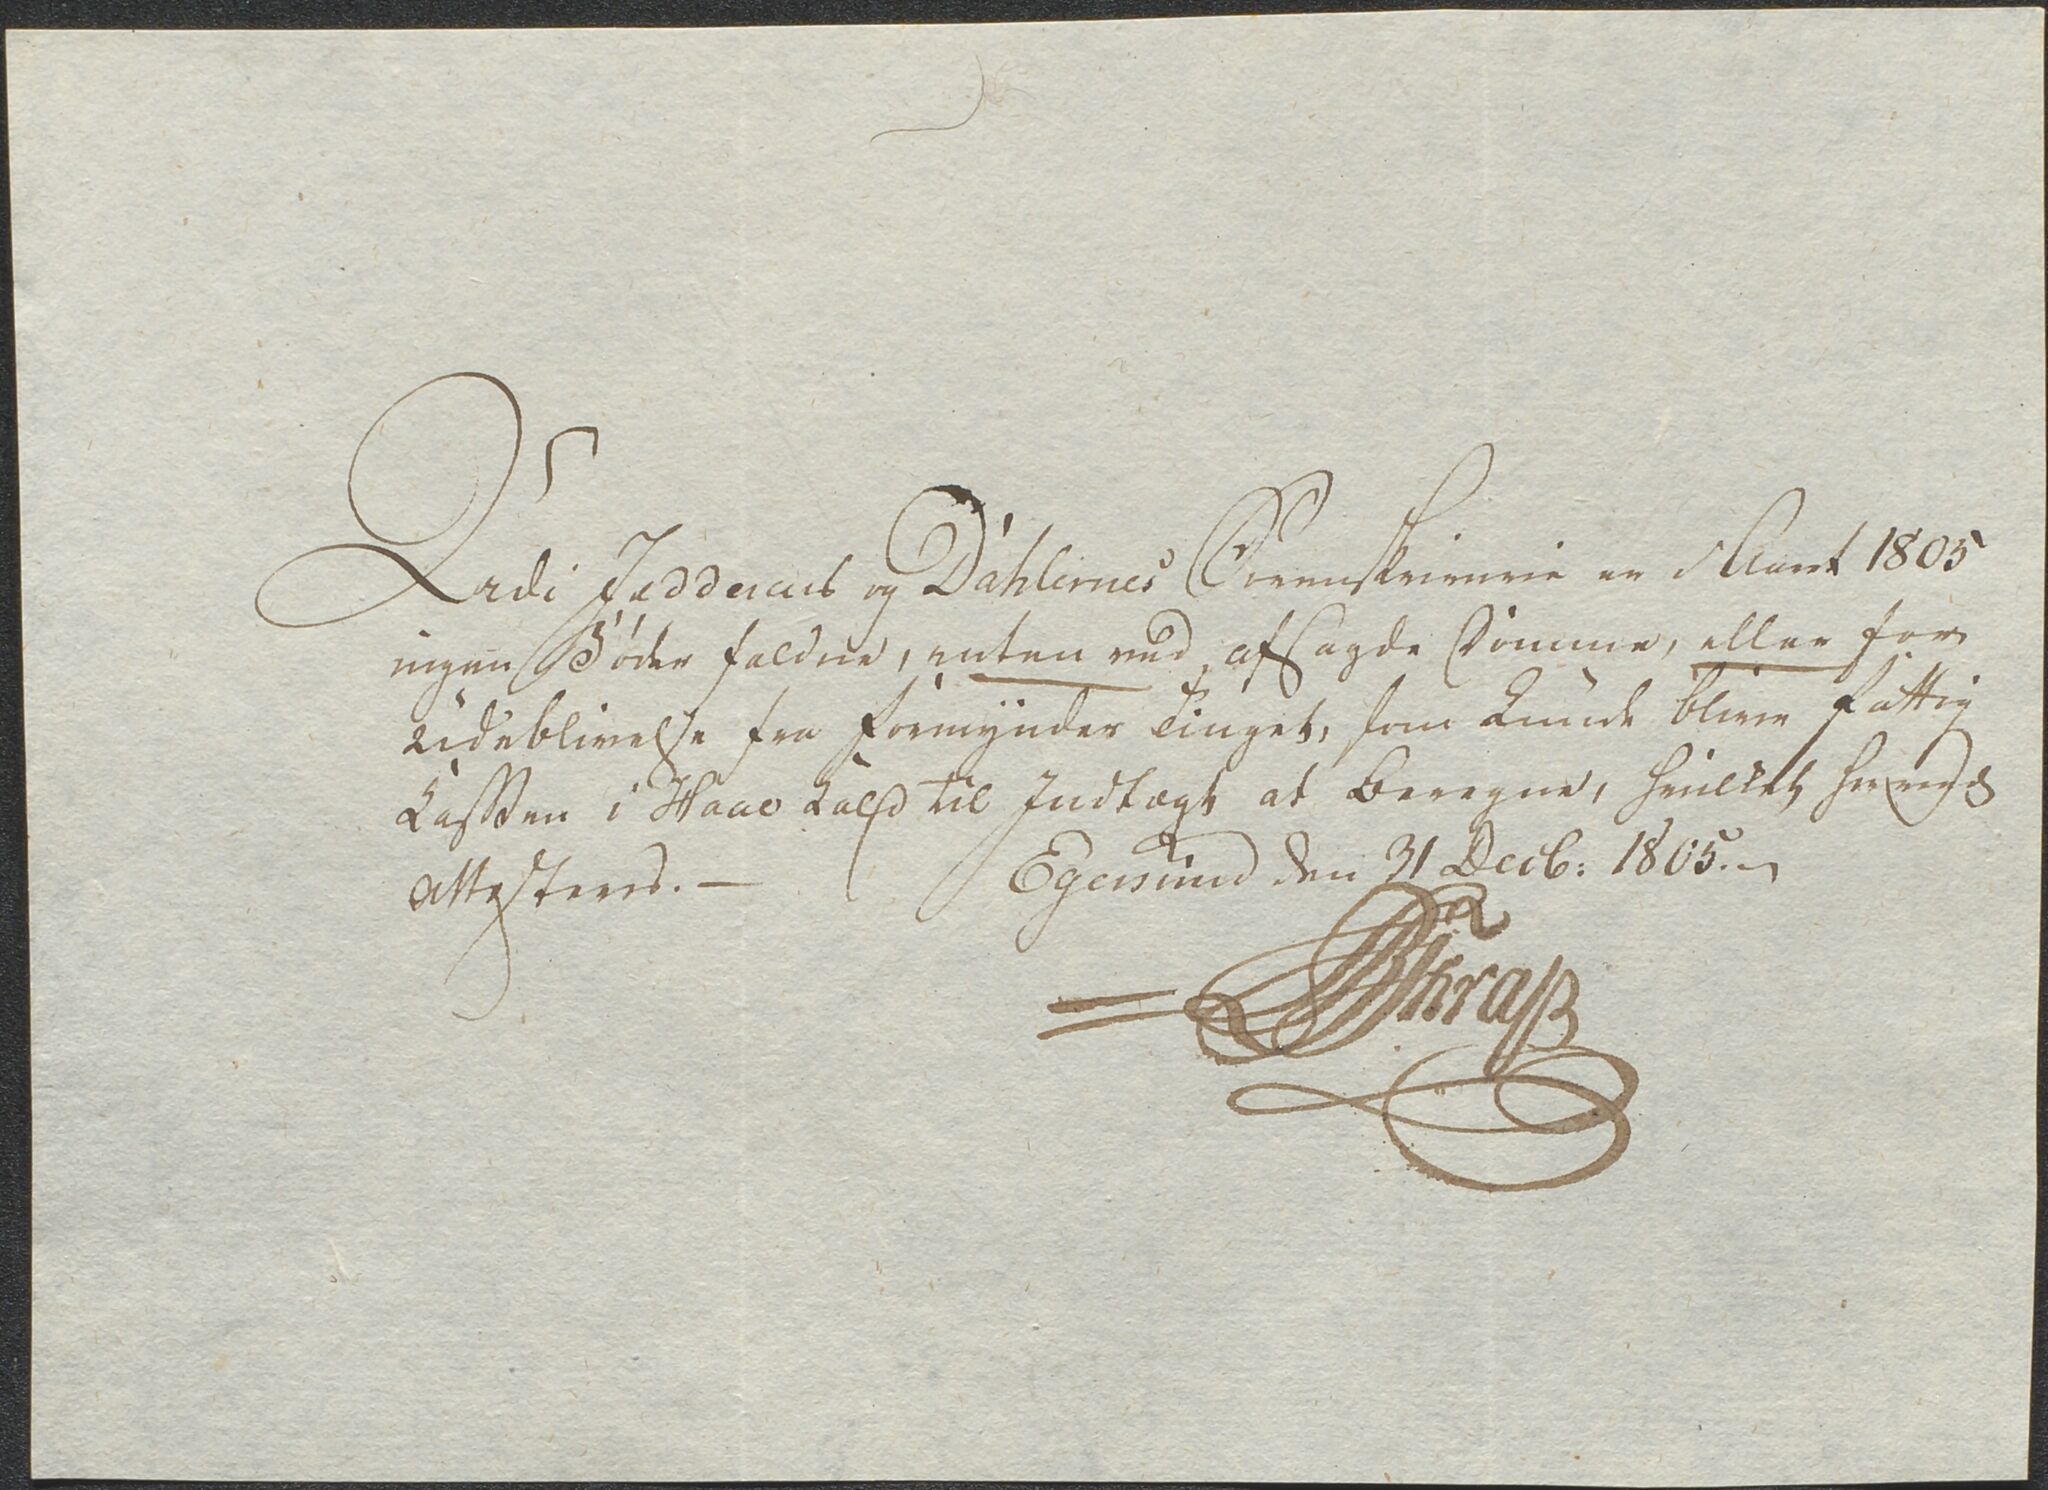 Udi Jedderens og Dahlernes Sorenskriverie er i Aaret 1805
ingen Bøder faldne, enten ved afsagde Domme, eller for
Udeblivelse fra Formynder Tinget, som kunde blive Fattig
Cassen i Haae Kald til Indtægt at beregne, hvilket herved
attesteres. — Egersund den 31 Decb: 1805.